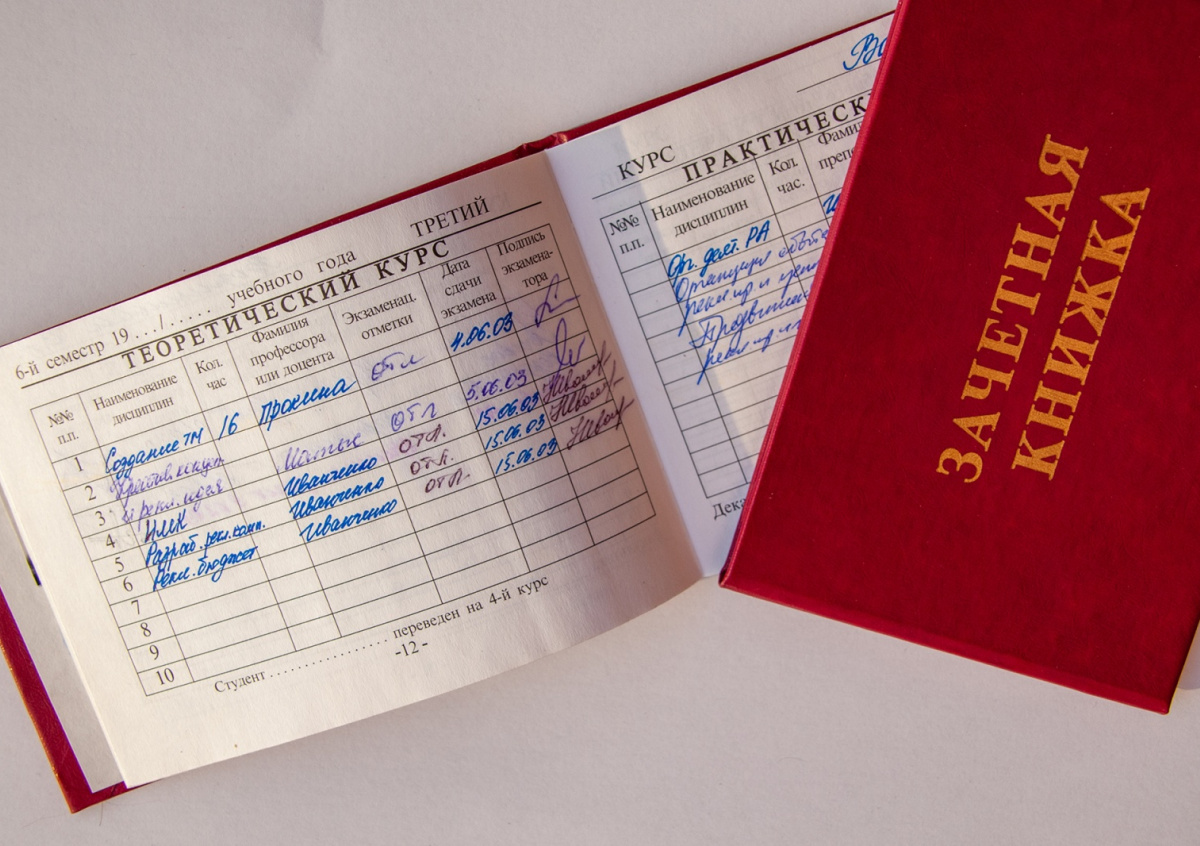 6-й семестр 19 . . . / . . . . . . учебного года
ТРЕТИЙ
ТЕОРЕТИЧЕСКИЙ КУРС
№№ п.п.
Наименование дисциплин
Кол. час
Фамилия профессора или доцента
Экзаменац. отметки
Дата сдачи экзамена
Подпись экзамена-тора
1 Создание ТМ 16 Пронина отл 4.06.03
2 отл 5.06.03
3 и рекл. идея Иванченко отл. 15.06.03
4 ИМК Иванченко отл. 15.06.03
5 Разраб. рекл. комп. Иванченко отл. 15.06.03
6 Рекл. бюджет
7
8
9
10
Студент . . . . . . . . . . . . . . . . . . переведен на 4-й курс
-12-
КУРС
ПРАКТИЧЕСК
№№ п.п.
Наименование дисциплин
Кол. час.
Фами
препо
Ор. деят. РА
Организация
Дека
ЗАЧЕТНАЯ
КНИЖКА